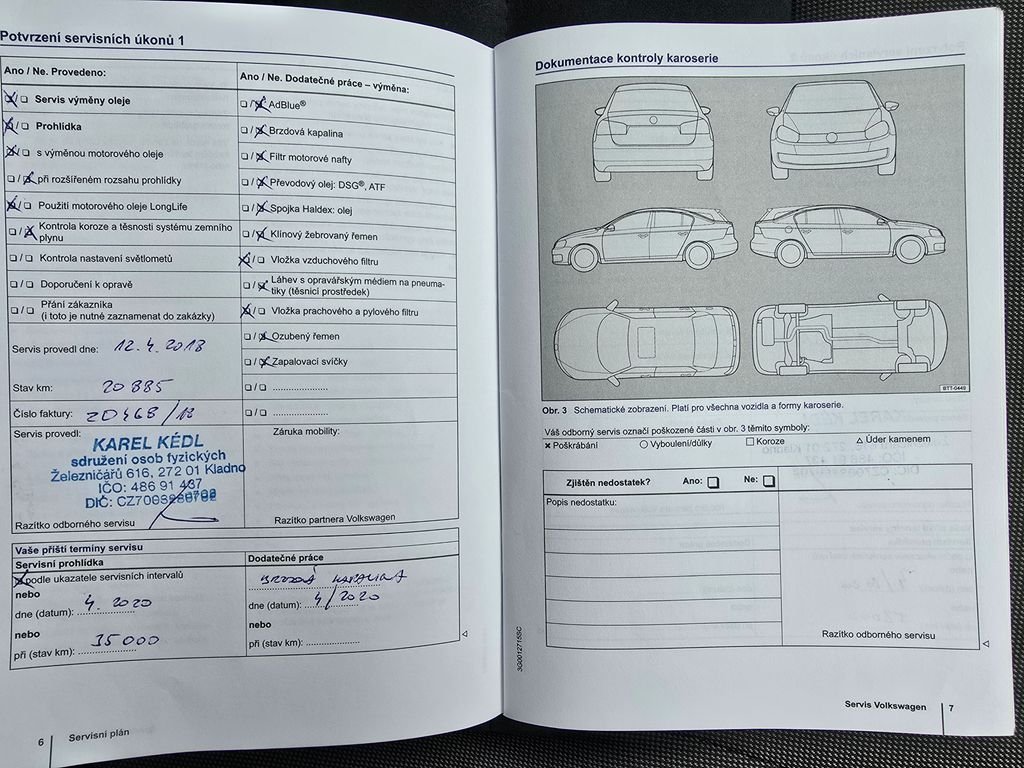 Potvrzení servisních úkonů 1
Ano / Ne. Provedeno:
Servis výměny oleje
Prohlídka
s výměnou motorového oleje
při rozšířeném rozsahu prohlídky
Použití motorového oleje LongLife
Kontrola koroze a těsnosti systému zemního
plynu
Kontrola nastavení světlometů
Doporučení k opravě
Přání zákazníka
(i toto je nutné zaznamenat do zakázky)
Servis provedl dne: 12.4.2018
Stav km: 20 885
Číslo faktury: 20468/18
Servis provedl:
KAREL KÉDL
sdružení osob fyzických
Železničářů 616, 272 01 Kladno
IČO: 486 91 437
Razítko odborného servisu
Ano / Ne. Dodatečné práce – výměna:
AdBlue®
Brzdová kapalina
Filtr motorové nafty
Převodový olej: DSG®, ATF
Spojka Haldex: olej
Klínový žebrovaný řemen
Vložka vzduchového filtru
Láhev s opravářským médiem na pneuma-
tiky (těsnicí prostředek)
Vložka prachového a pylového filtru
Ozubený řemen
Zapalovací svíčky
Záruka mobility:
Razítko partnera Volkswagen
Vaše příští termíny servisu
Servisní prohlídka
podle ukazatele servisních intervalů
nebo
dne (datum): 4. 2020
nebo
při (stav km): 35 000
Dodatečné práce
BRZDOVÁ KAPALINA
dne (datum): 4/2020
nebo
při (stav km):
6 Servisní plán
Dokumentace kontroly karoserie
BTT-0449
Obr. 3 Schematické zobrazení. Platí pro všechna vozidla a formy karoserie.
Váš odborný servis označí poškozené části v obr. 3 těmito symboly:
Poškrábání Vyboulení/důlky Koroze Úder kamenem
Zjištěn nedostatek? Ano: Ne:
Popis nedostatku:
Razítko odborného servisu
3G0012715SC
Servis Volkswagen 7